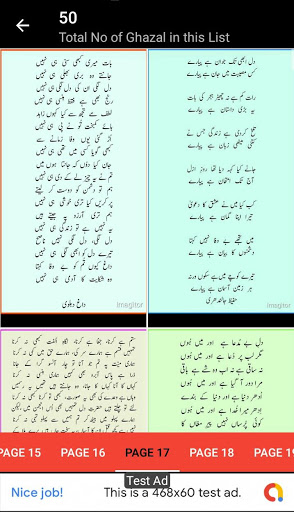 50
Total No of Ghazal in this List
بات میری کبھی سنی ہی نہیں
جانتے وہ بری بھلی ہی نہیں
دل لگی ان کی دل لگی ہی نہیں
رنج بھی ہے فقط ہنسی ہی نہیں
لطف مے تجھ سے کیا کہوں زاہد
ہائے کمبخت تو نے پی ہی نہیں
اڑ گئی یوں وفا زمانے سے
کبھی گویا کسی میں تھی ہی نہیں
جان کیا دوں کہ جانتا ہوں میں
تم نے یہ چیز لے کے دی ہی نہیں
ہم تو دشمن کو دوست کر لیتے
پر کریں کیا تری خوشی ہی نہیں
ہم تری آرزو پہ جیتے ہیں
یہ نہیں ہے تو زندگی ہی نہیں
دل لگی، دل لگی نہیں ناصح
تیرے دل کو ابھی لگی ہی نہیں
داغ کیوں تم کو بے وفا کہتا
وہ شکایت کا آدمی ہی نہیں
داغ دہلوی
imagitor
دل ابھی تک جوان ہے پیارے
کس مصیبت میں جان ہے پیارے
رات کم ہے نہ چھیڑ ہجر کی بات
یہ بڑی داستان ہے پیارے
تلخ کر دی ہے زندگی جس نے
کتنی میٹھی زبان ہے پیارے
جانے کیا کہہ دیا تھا روز ازل
آج تک امتحان ہے پیارے
کب کیا میں نے عشق کا دعویٰ
تیرا اپنا گمان ہے پیارے
میں تجھے بے وفا نہیں کہتا
دشمنوں کا بیان ہے پیارے
تیرے کوچے میں ہے سکوں ورنہ
ہر زمین آسمان ہے پیارے
حفیظ جالندھری
imagitor
دل بے مدعا ہے اور میں ہوں
مگر لب پر دعا ہے اور میں ہوں
نہ ساقی ہے نہ اب وہ شے ہے باقی
مرا دور آ گیا ہے اور میں ہوں
ادھر دنیا ہے اور دنیا کے بندے
ادھر میرا خدا ہے اور میں ہوں
کوئی پرساں نہیں پیر مغاں کا
PAGE 15
PAGE 16
PAGE 17
PAGE 18
PAGE 19
Test Ad
Nice job!
This is a 468x60 test ad.